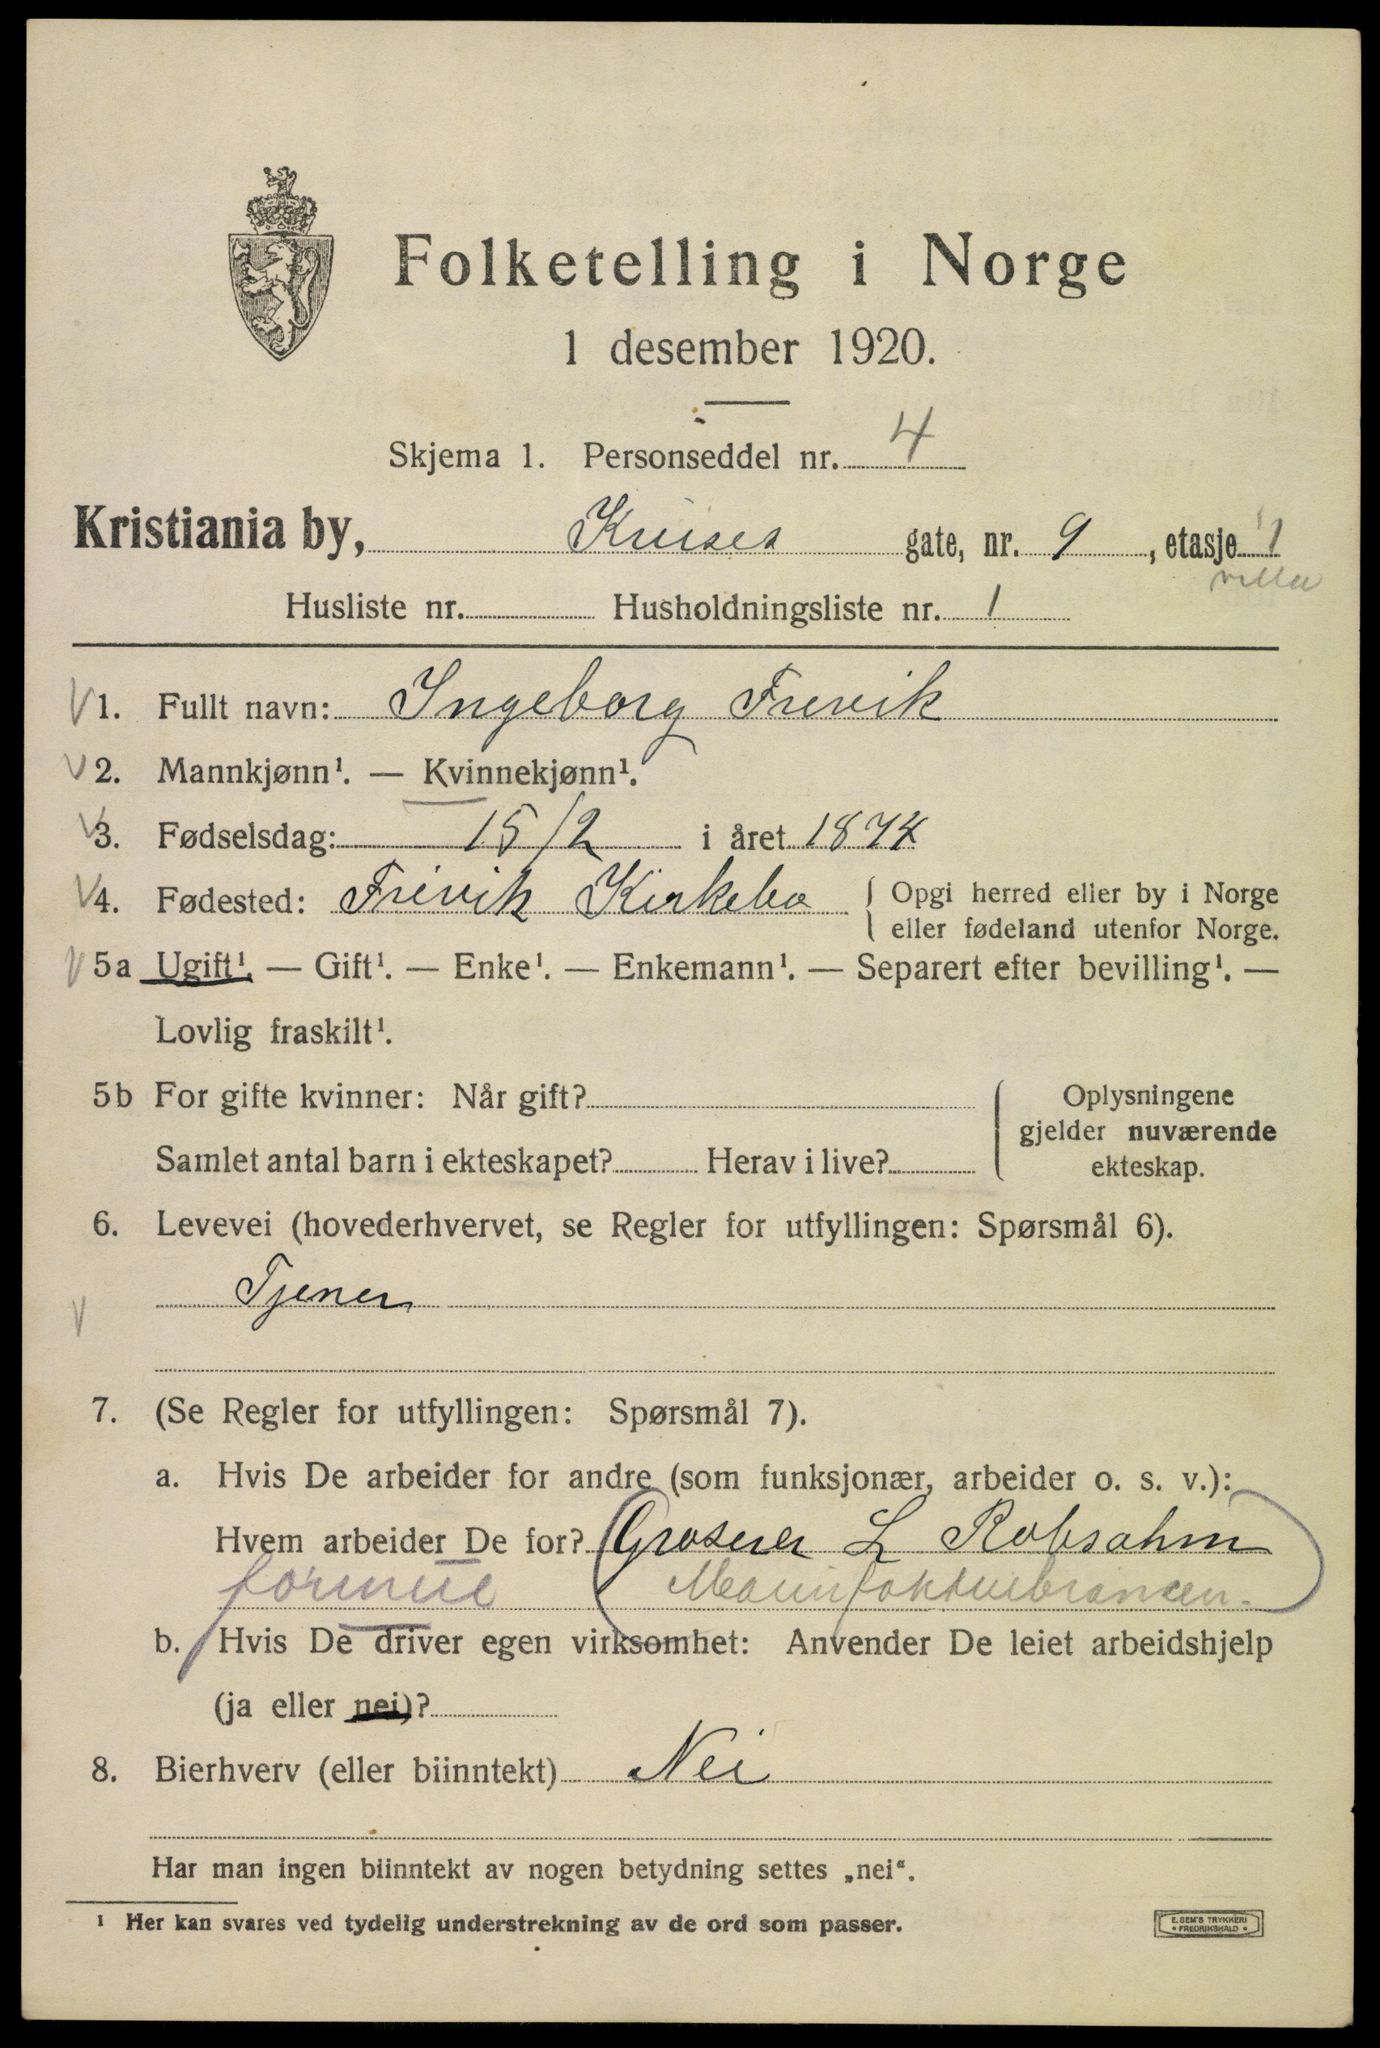 Folketelling i Norge
1 desember 1920.
Skjema 1. Personseddel nr. 4
Kristiania by, Kruses gate, nr. 9, etasje 1
villa
Husliste nr. Husholdningsliste nr. 1
1. Fullt navn: Ingeborg Frevik
2. Mannkjønn¹. — Kvinnekjønn¹.
3. Fødselsdag: 15/2 i året 1874
4. Fødested: Frevik Kirkebø { Opgi herred eller by i Norge
eller fødeland utenfor Norge.
5a Ugift¹. — Gift¹. — Enke¹. — Enkemann¹. — Separert efter bevilling¹. —
Lovlig fraskilt¹.
5b For gifte kvinner: Når gift? { Oplysningene
gjelder nuværende
Samlet antal barn i ekteskapet? Herav i live?
ekteskap.
6. Levevei (hovederhvervet, se Regler for utfyllingen: Spørsmål 6).
Tjener
7. (Se Regler for utfyllingen: Spørsmål 7).
a. Hvis De arbeider for andre (som funksjonær, arbeider o. s. v.):
Hvem arbeider De for? Groserer L Robsahm
formue Manufakturbransen.
b. Hvis De driver egen virksomhet: Anvender De leiet arbeidshjelp
(ja eller nei)?
8. Bierhverv (eller biinntekt) Nei
Har man ingen biinntekt av nogen betydning settes „nei“.
¹ Her kan svares ved tydelig understrekning av de ord som passer.
E. SEM'S TRYKKERI
FREDRIKSHALD